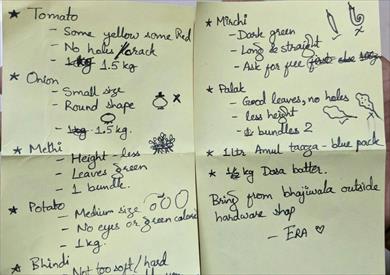 * Tomato
- Some yellow some Red
- No holes / crack
- 1 kg 1.5 kg
* Onion
- Small size
- Round shape
- 1 kg. 1.5 kg.
* Methi
- Height - less
- Leaves green
- 1 bundle.
* Potato
- Medium size
- No eyes or green color
- 1 kg.
* Bhindi
- Not too soft / hard
* Mirchi
- Dark green
- Long & straight
- Ask for free
* Palak
- Good leaves, no holes
- less height
- bundles 2
* 1 ltr Amul taaza - blue pack
* kg Dosa batter.
Bring from bhajiwala outside
hardware shop
- ERA ♡